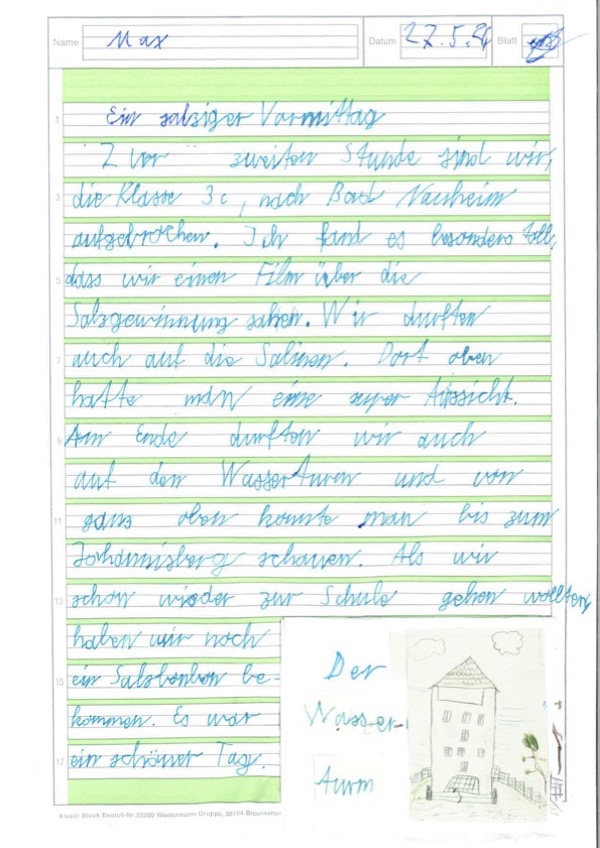 Name Max Datum 27.5.21 Blatt
Ein salziger Vormittag
Zur zweiten Stunde sind wir,
die Klasse 3c, nach Bad Nauheim
aufgebrochen. Ich fand es besonders toll,
dass wir einen Film über die
Salzgewinnung sahen. Wir durften
auch auf die Salinen. Dort oben
hatte man eine super Aussicht.
Am Ende durften wir auch
auf den Wasserturm und von
ganz oben konnte man bis zum
Johannisberg schauen. Als wir
schon wieder zur Schule gehen wollten,
haben wir noch
ein Salzbonbon be-
kommen. Es war
ein schöner Tag.
Der
Wasser-
turm